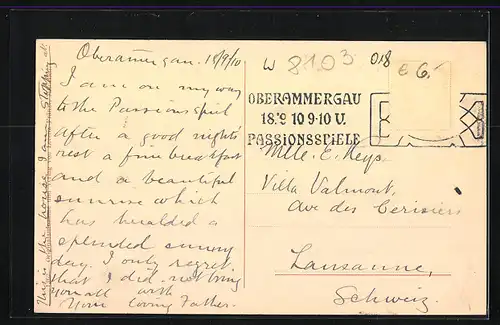 Oberammergau. 18/9/10
I am on my way
to the Passionsspiel
after a good nights'
rest a fine breakfast
and a beautiful
sunrise which
has heralded a
splended sunny
day. I only regret
that I did not bring
you all with
Your loving Father.
This is the house I am stopping at
W 8103 018
e 6.-
OBERAMMERGAU
18.9 10 9-10 V.
PASSIONSSPIELE
Mlle. E. Keys
Villa Valmont,
Ave des Cerisiers
Lausanne,
Schweiz.